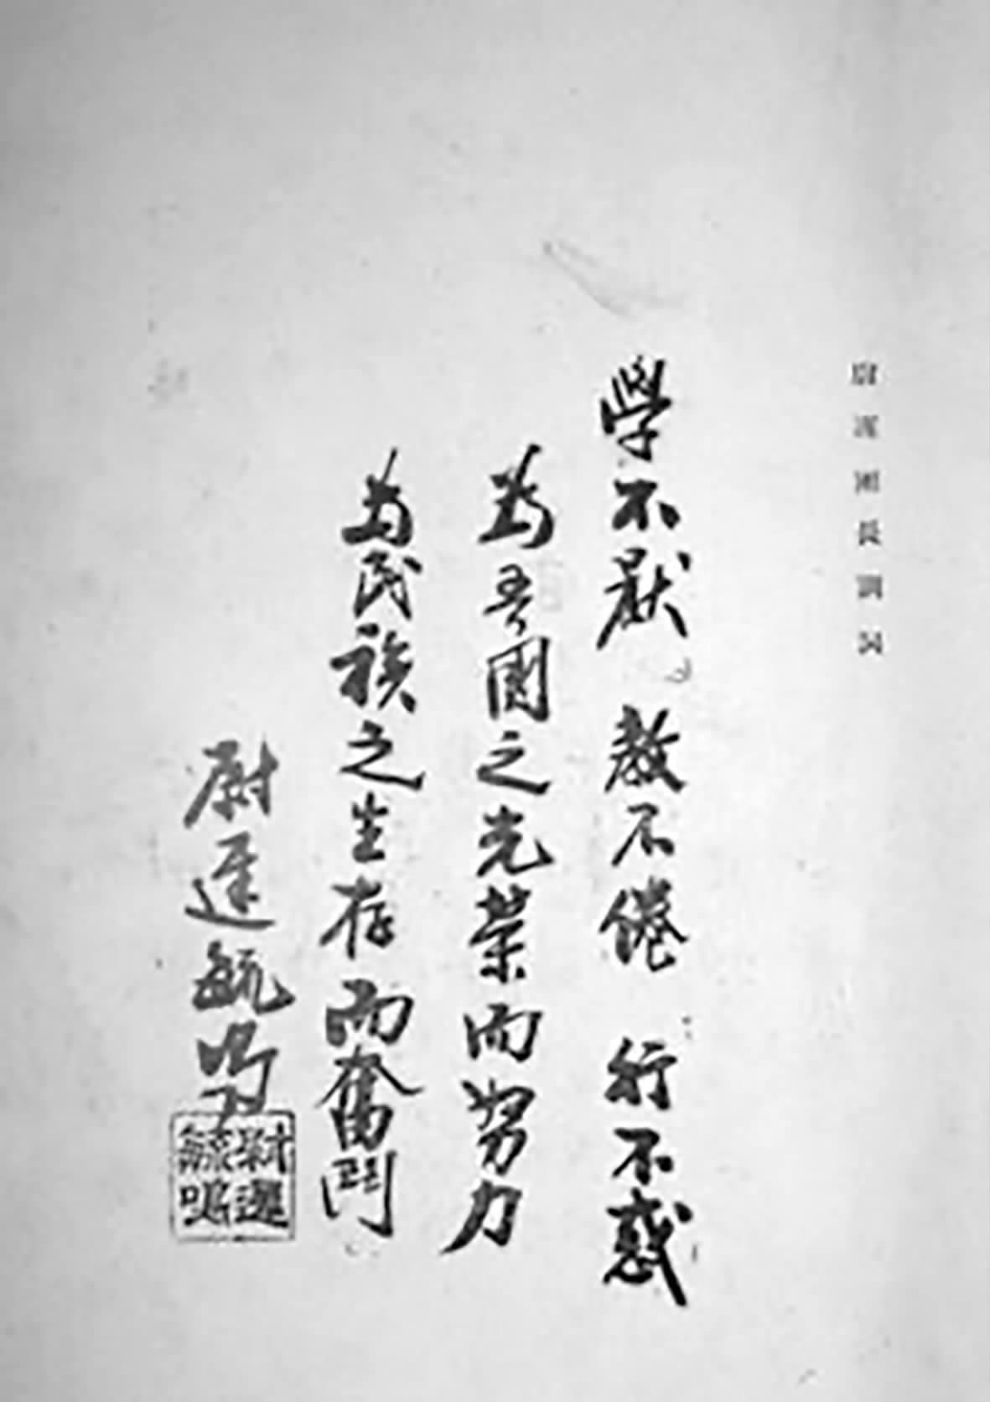 尉遲團長訓詞
學不厭 教不倦 行不惑
為吾國之光榮而努力
為民族之生存而奮鬥
尉遲毓鳴
尉遲
毓鳴